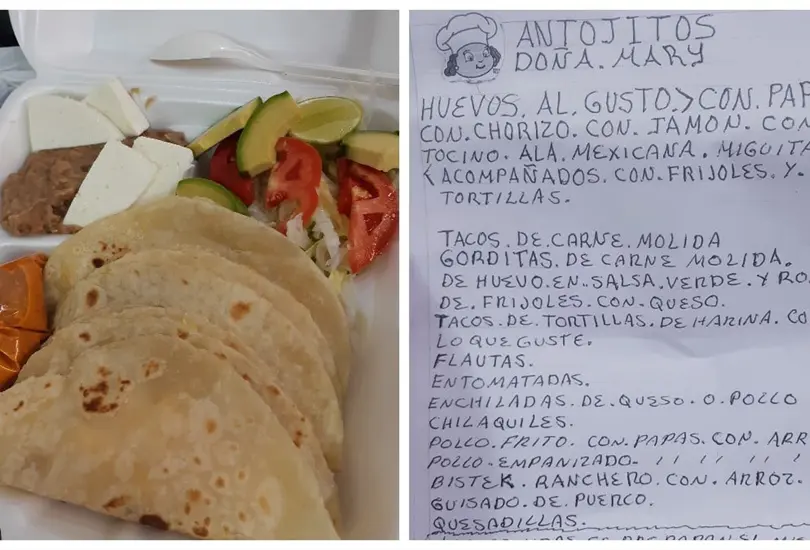 ANTOJITOS
DOÑA. MARY
HUEVOS. AL. GUSTO.> CON. PAP
CON. CHORIZO. CON. JAMON. CON
TOCINO. ALA. MEXICANA. MIGUITA
< ACOMPAÑADOS. CON. FRIJOLES. Y.
TORTILLAS.
TACOS. DE. CARNE. MOLIDA
GORDITAS. DE CARNE MOLIDA.
DE HUEVO. EN. SALSA. VERDE. Y RO
DE. FRIJOLES. CON. QUESO.
TACOS. DE. TORTILLAS. DE HARINA. CO
LO QUE GUSTE.
FLAUTAS.
ENTOMATADAS.
ENCHILADAS. DE. QUESO. O. POLLO
CHILAQUILES.
POLLO. FRITO. CON. PAPAS. CON. ARR
POLLO. EMPANIZADO. 11 11 11 11 1
BISTEK. RANCHERO. CON. ARROZ.
GUISADO. DE. PUERCO.
QUESADILLAS.